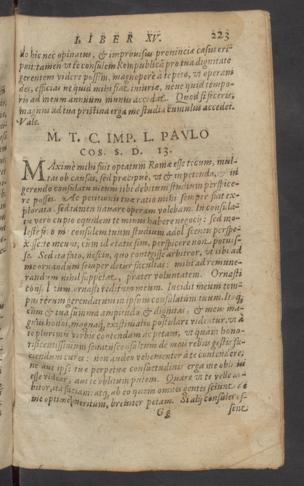 LIBER XV. 223
do hic nec opinatus, & improuisus prouinciæ casus eri-
puit: tamen vt te consulem Rempublicā pro tua dignitate
gerentem videre possim, magnopere à te peto, vt operam
des, efficias ne quid mihi fiat iniuriæ, neue quid tempo-
ris ad meum annuum munus accedat. Quod si feceris,
magnus ad tua pristina erga me studia cumulus accedet.
Vale.
M. T. C. IMP. L. PAVLO
COS. S. D. 13.
MAximè mihi fuit optatum Romæ esse tecum, mul-
tas ob causas, sed præcipuè, vt & in petendo, & in
gerendo consulatu meum tibi debitum studium perspice-
re posses. Ac petitionis tuæ ratio mihi semper fuit ex-
plorata: sed tamen nauare operam volebam. In consula-
tu vero cupio equidem te minus habere negocij: sed mo-
lestè fero me consulem tuum studium adolescentis perspe-
xisse: te meum, cum id ætatis sim, perspicere non potuis-
se. Sed ita fato, nescio, quo contigisse arbitror, vt tibi ad
me ornandum semper detur facultas: mihi ad remune-
randum nihil suppetat, præter voluntatem. Ornasti
consulatum, ornasti reditum meum. Incidit meum tem-
pus rerum gerendarum in ipsum consulatum tuum. Itaque
cùm & tua summa amplitudo, & dignitas, & meus ma-
gnus honos, magnaq; existimatio postulare videatur, vt à
te plurimis verbis contendam, ac petam, vt quàm hono-
rificentissimum senatusconsultum de meis rebus gestis fa-
ciendum cures: non audeo vehementer à te contendere,
ne aut ipse tuæ perpetuæ consuetudinis erga me oblitus
esse videar, aut te oblitum putem. Quare vt te velle ar-
bitror, ita faciam: atq; ab eo quem omnes gentes sciunt de
me optimè meritum, breuiter petam. Si alij consules es-
Gg sent